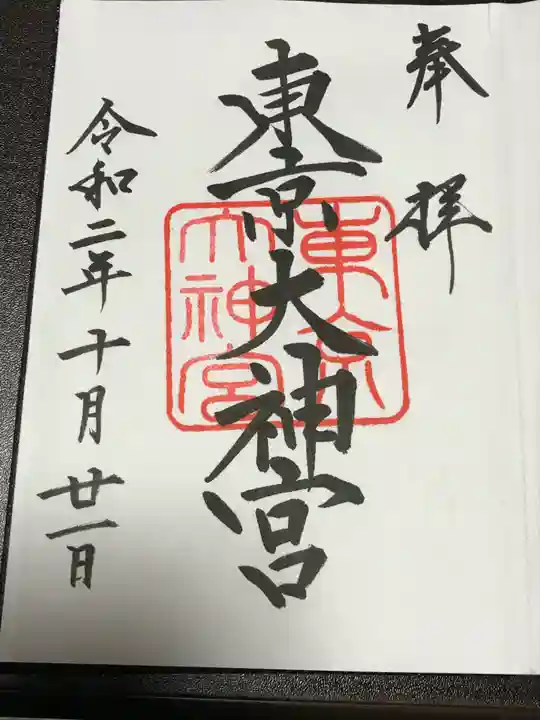 奉拝
東京大神宮
東京
大神宮
令和二年十月廿一日